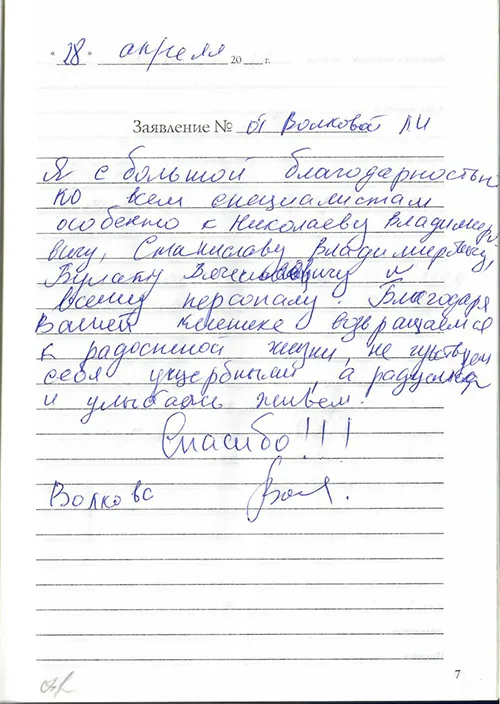 "28" апреля 20 г.
Заявление № от Волковой Л И
Я с большой благодарностью
ко всем специалистам
особенно к Николаеву Владимиро
вичу, Станиславу Владимировичу,
Булату Вячеславовичу и
всему персоналу. Благодаря
Вашей клинеке возвращаемся
к радостной жизни, не чувствуем
себя ущербными, а радуемся
и улыбаясь живём.
Спасибо!!!
Волкова
7